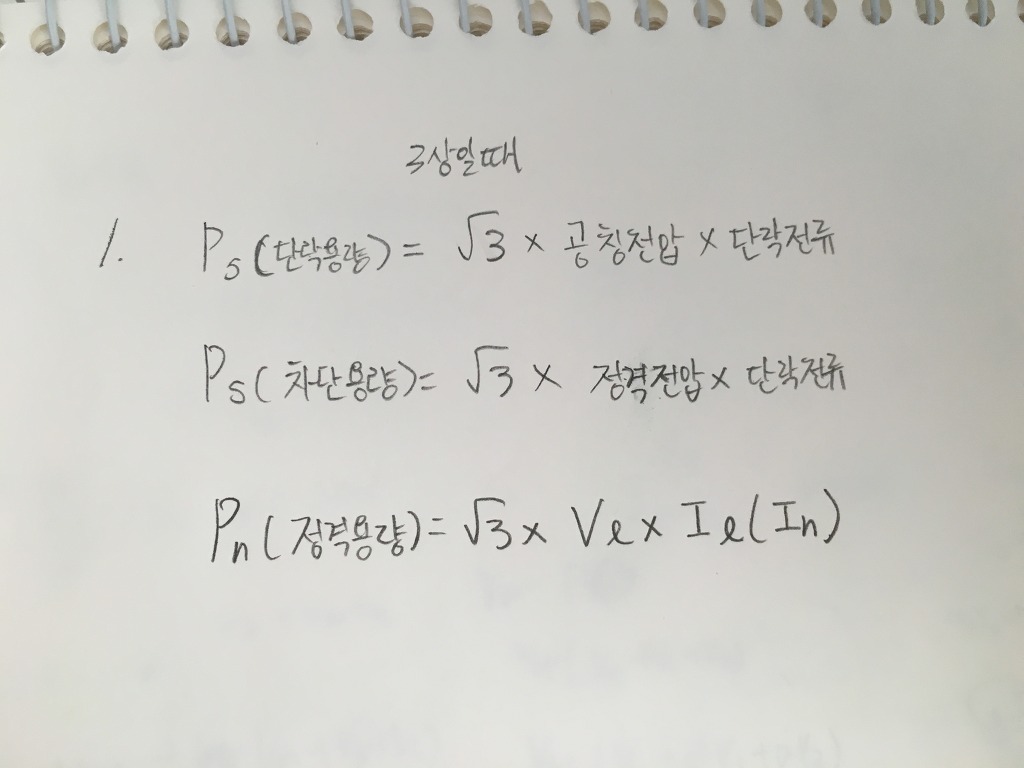 3상일때
1. Ps(단락용량) = √3 × 공칭전압 × 단락전류
Ps(차단용량) = √3 × 정격전압 × 단락전류
Pn(정격용량) = √3 × Vℓ × Iℓ(In)